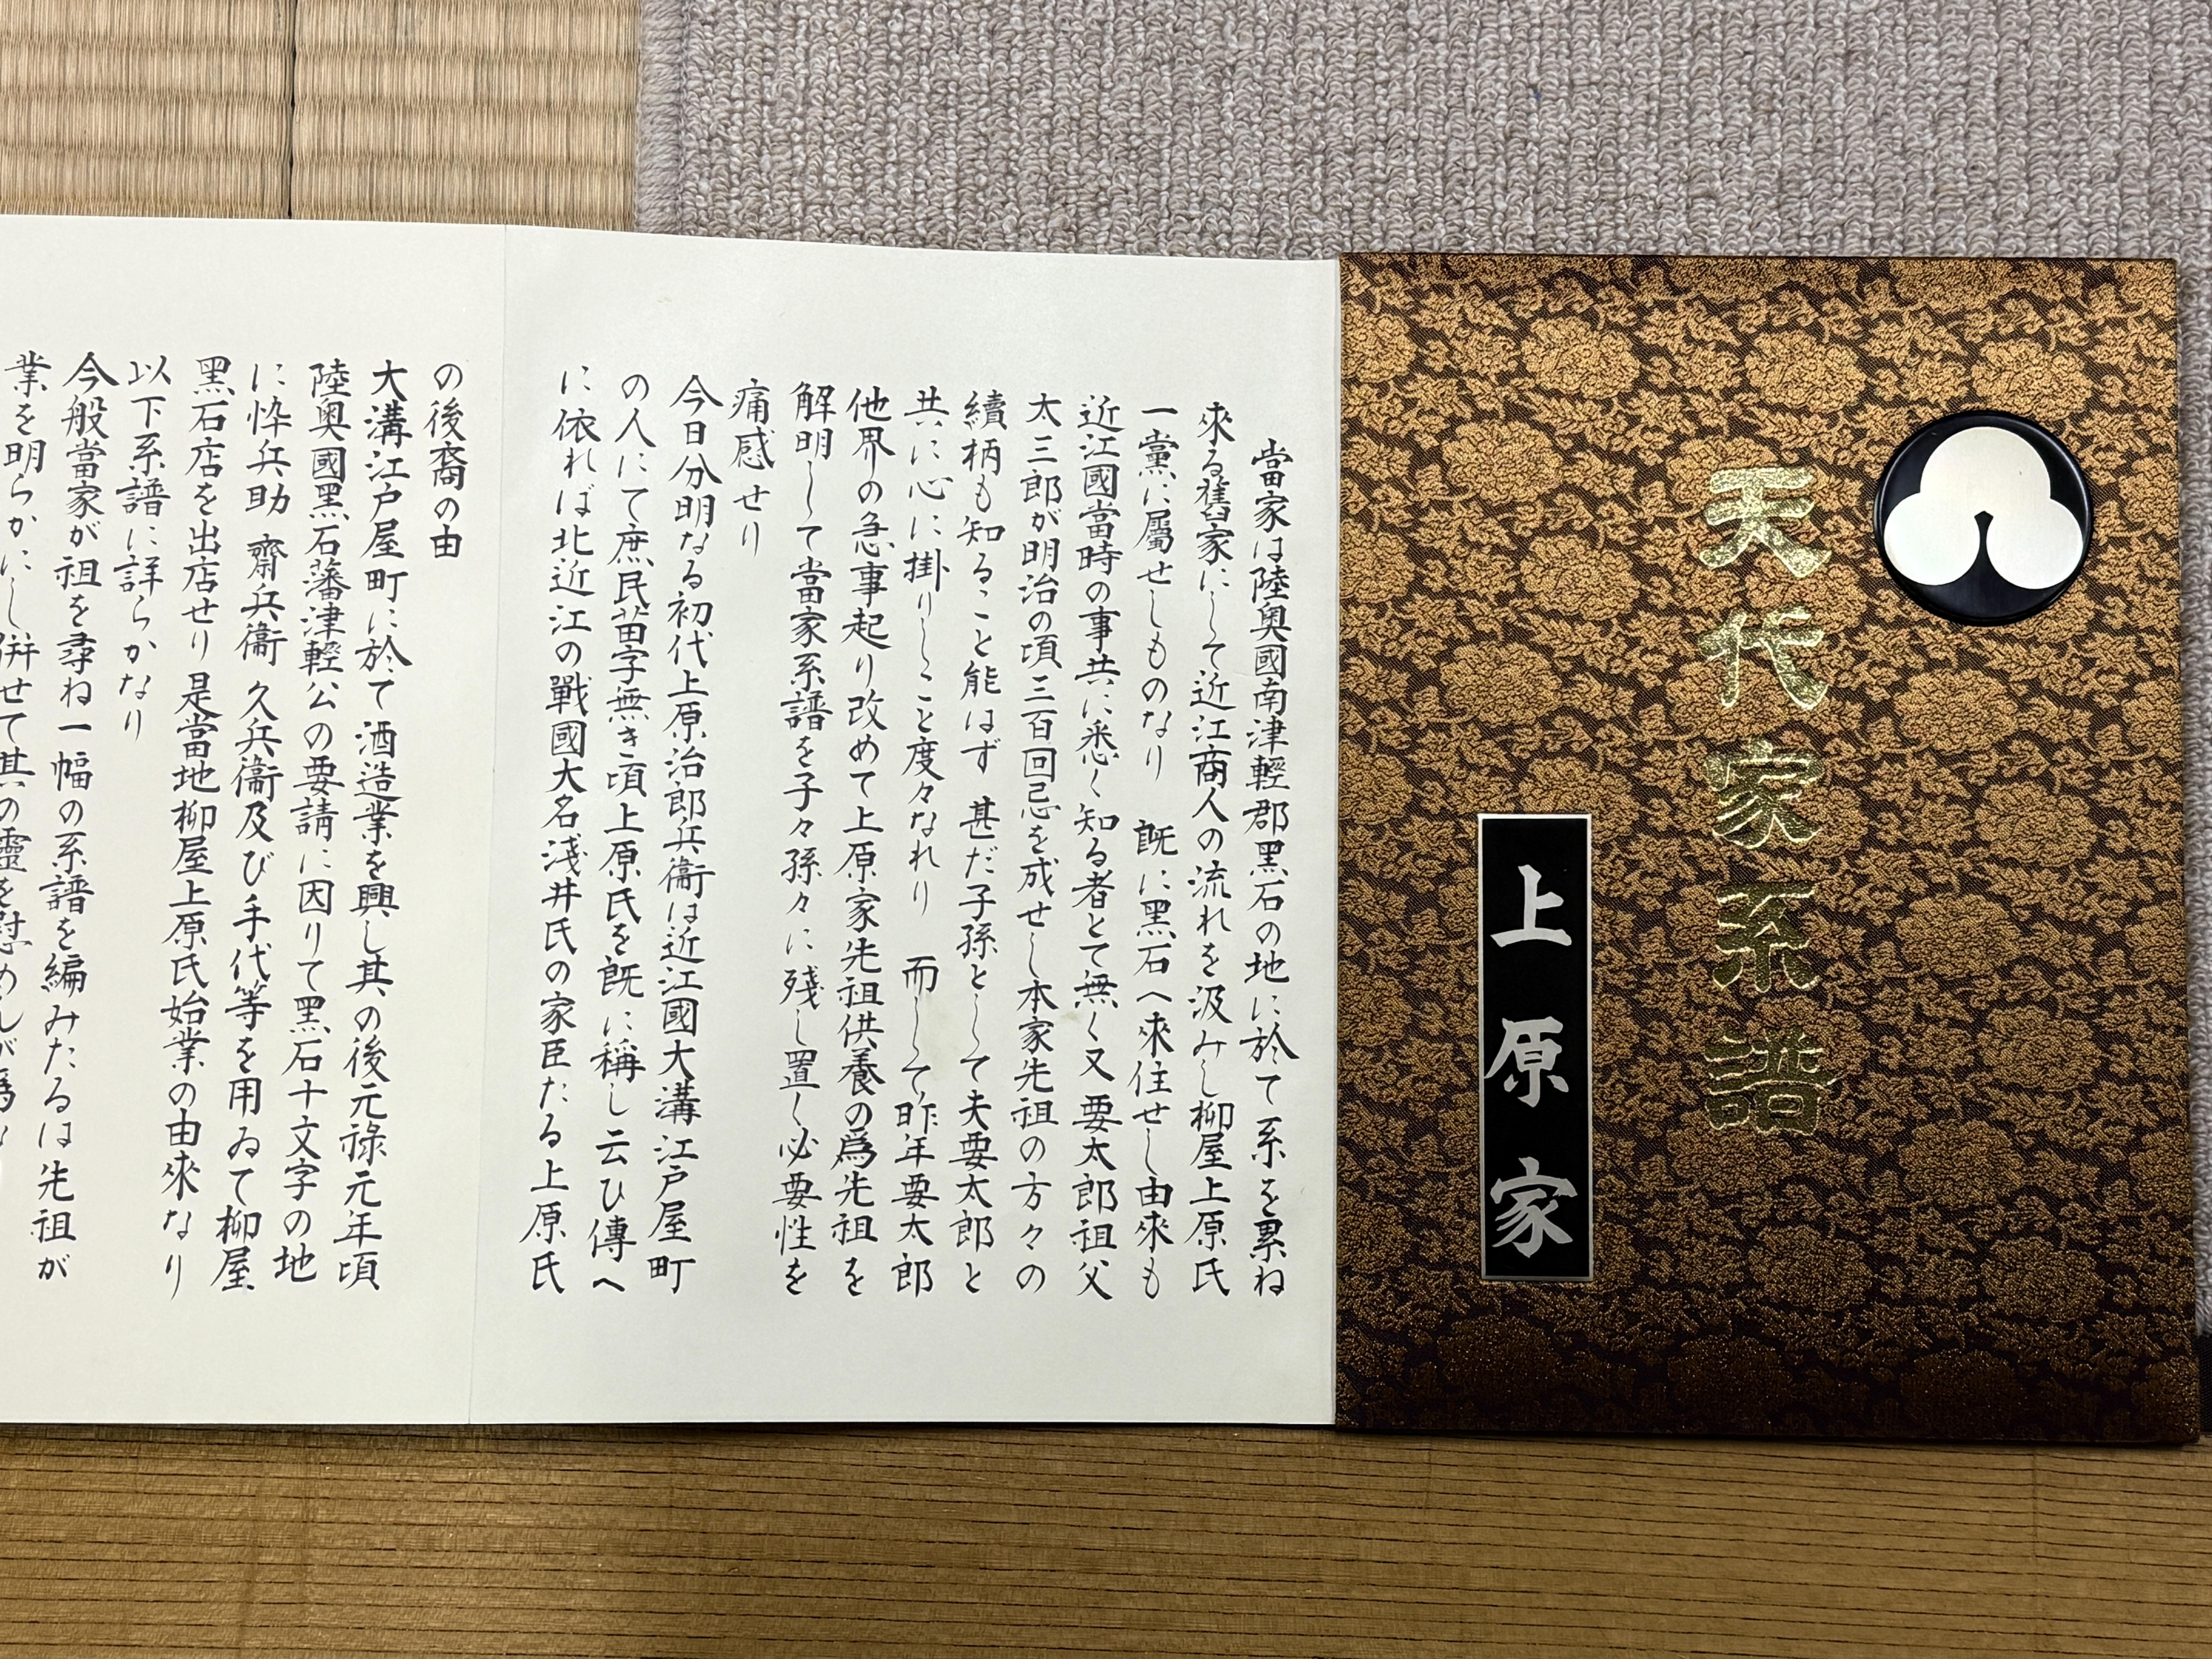 天代家系譜
上原家
當家は陸奥國南津輕郡黑石の地に於て系を累ね
來る舊家にして近江商人の流れを汲みし柳屋上原氏
一黨に屬せしものなり 既に黑石へ來住せし由來も
近江國當時の事共に悉く知る者とて無く又要太郎祖父
太三郎が明治の頃三百回忌を成せし本家先祖の方々の
續柄も知ること能はず 甚だ子孫として夫要太郎と
共に心に掛りしこと度々なれり 而して昨年要太郎
他界の急事起り改めて上原家先祖供養の爲先祖を
解明して當家系譜を子々孫々に残し置く必要性を
痛感せり
今日分明なる初代上原治郎兵衞は近江國大溝江戸屋町
の人にて庶民苗字無き頃上原氏を既に稱し云ひ傳へ
に依れば北近江の戰國大名淺井氏の家臣たる上原氏
の後裔の由
大溝江戸屋町に於て酒造業を興し其の後元祿元年頃
陸奥國黑石藩津輕公の要請に因りて黑石十文字の地
に忰兵助 齋兵衞 久兵衞及び手代等を用ゐて柳屋
黑石店を出店せり 是當地柳屋上原氏始業の由來なり
以下系譜に詳らかなり
今般當家が祖を尋ね一幅の系譜を編みたるは先祖が
業を明らかにし併せて其の靈を慰めんが爲